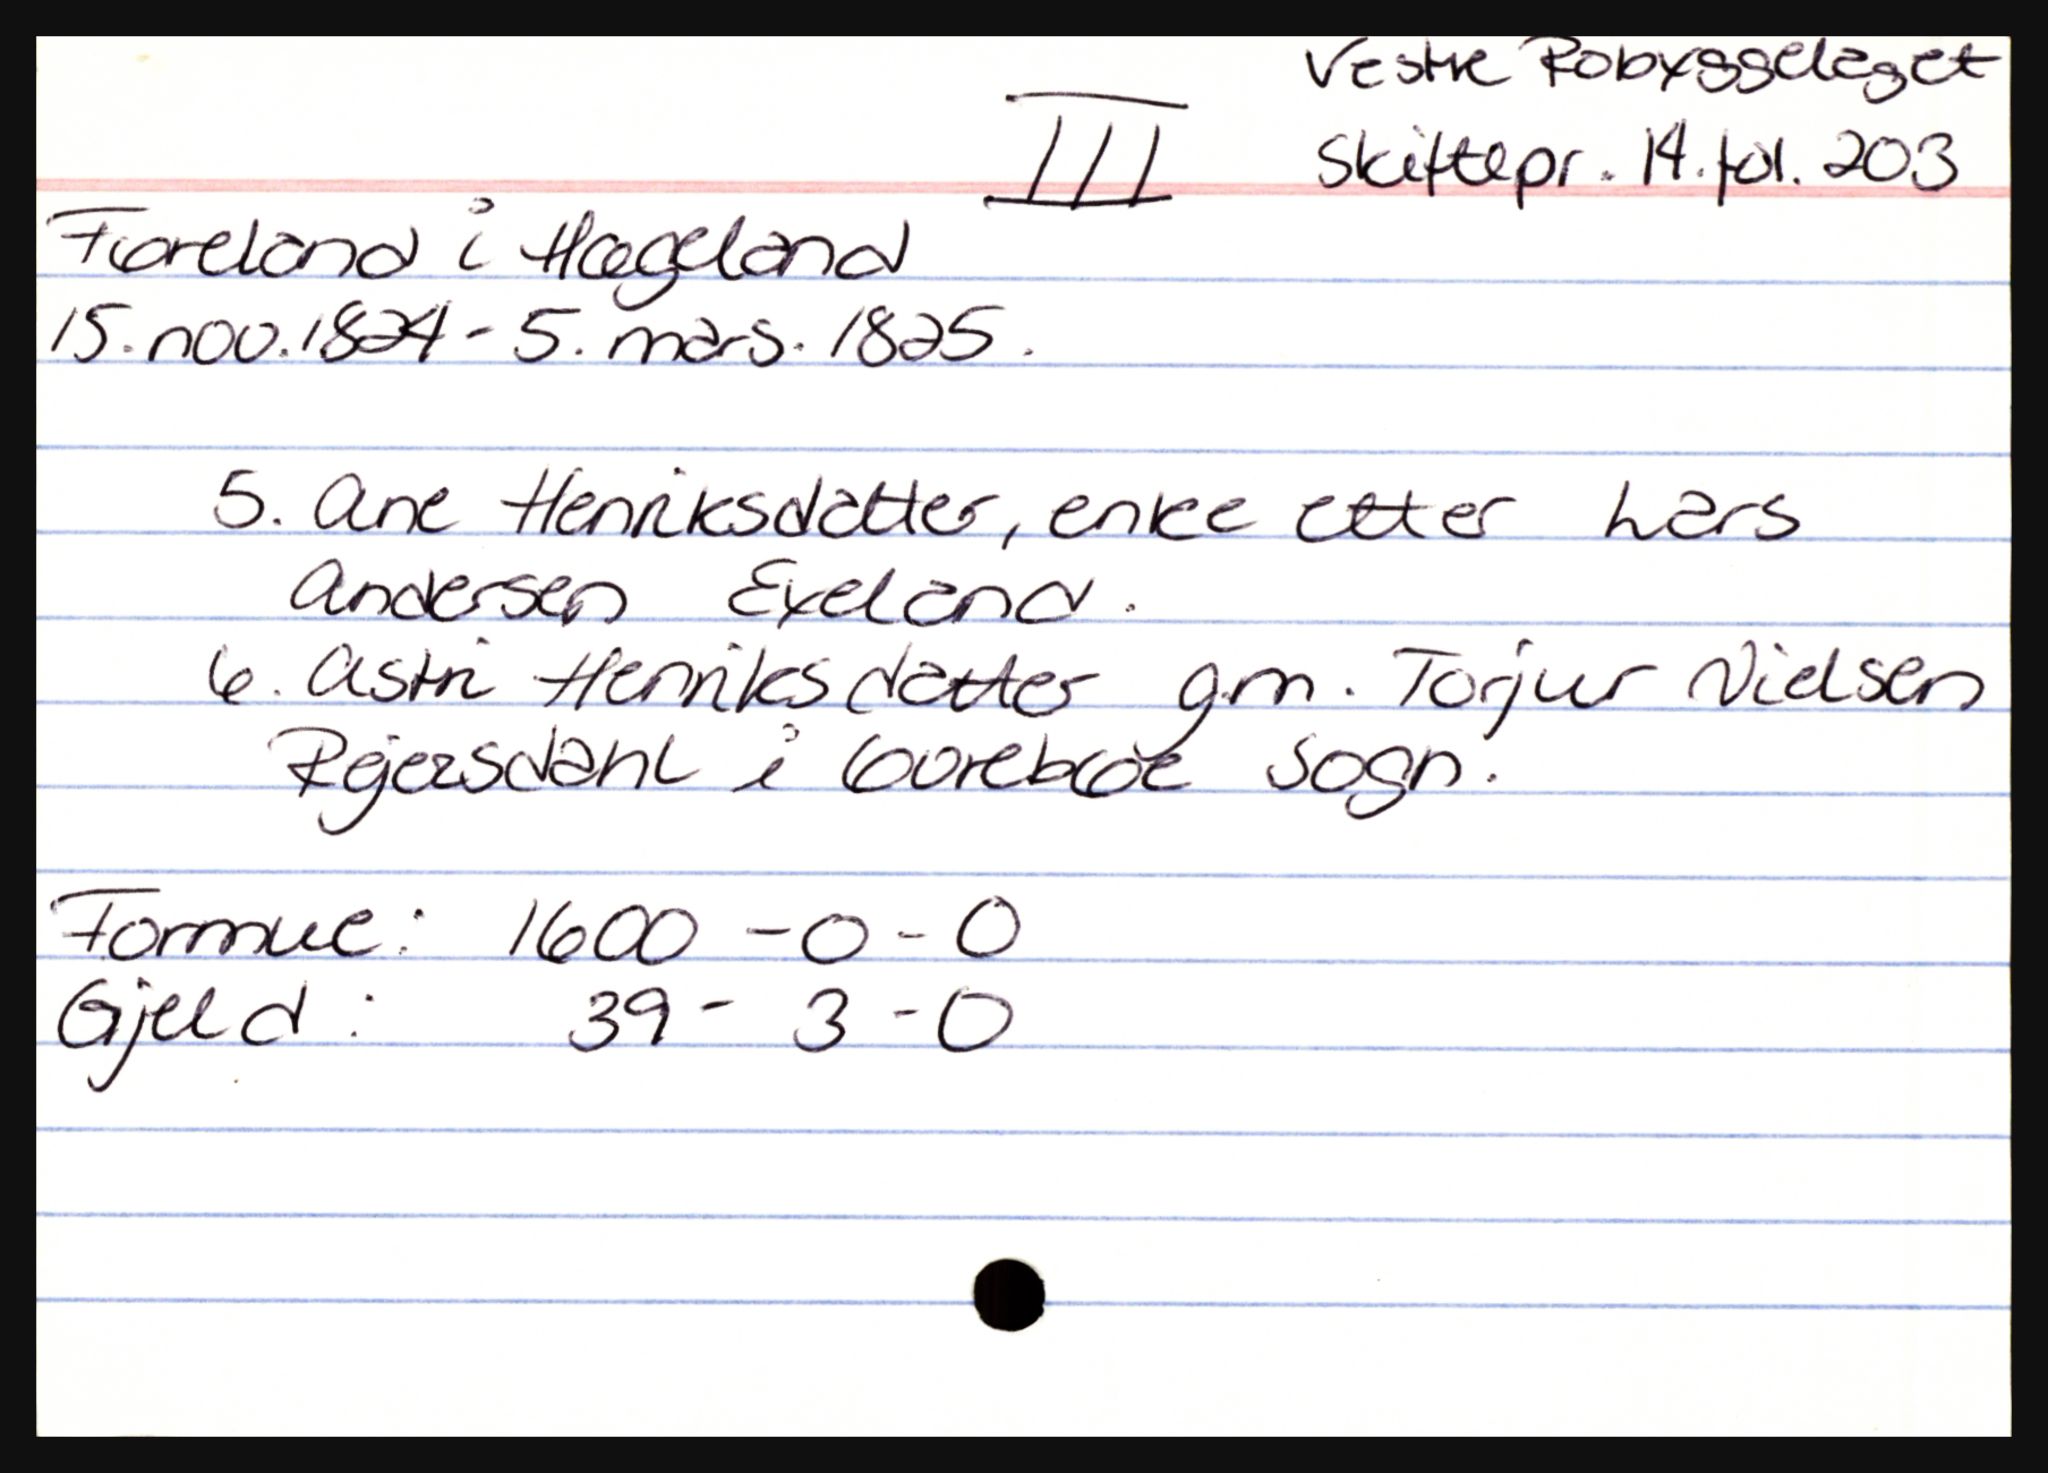 Vestre Robyggelaget
III
Skiftepr. 14. fol. 203
Fioreland i Hægeland
15. nov. 1824 - 5. mars. 1825.
5. Ane Henriksdatter, enke etter Lars
Andersen Exeland.
6. Astri Henriksdatter g.m. Torjur Nielsen
i sogn.
Formue: 1600 - 0 - 0
Gjeld: 39 - 3 - 0